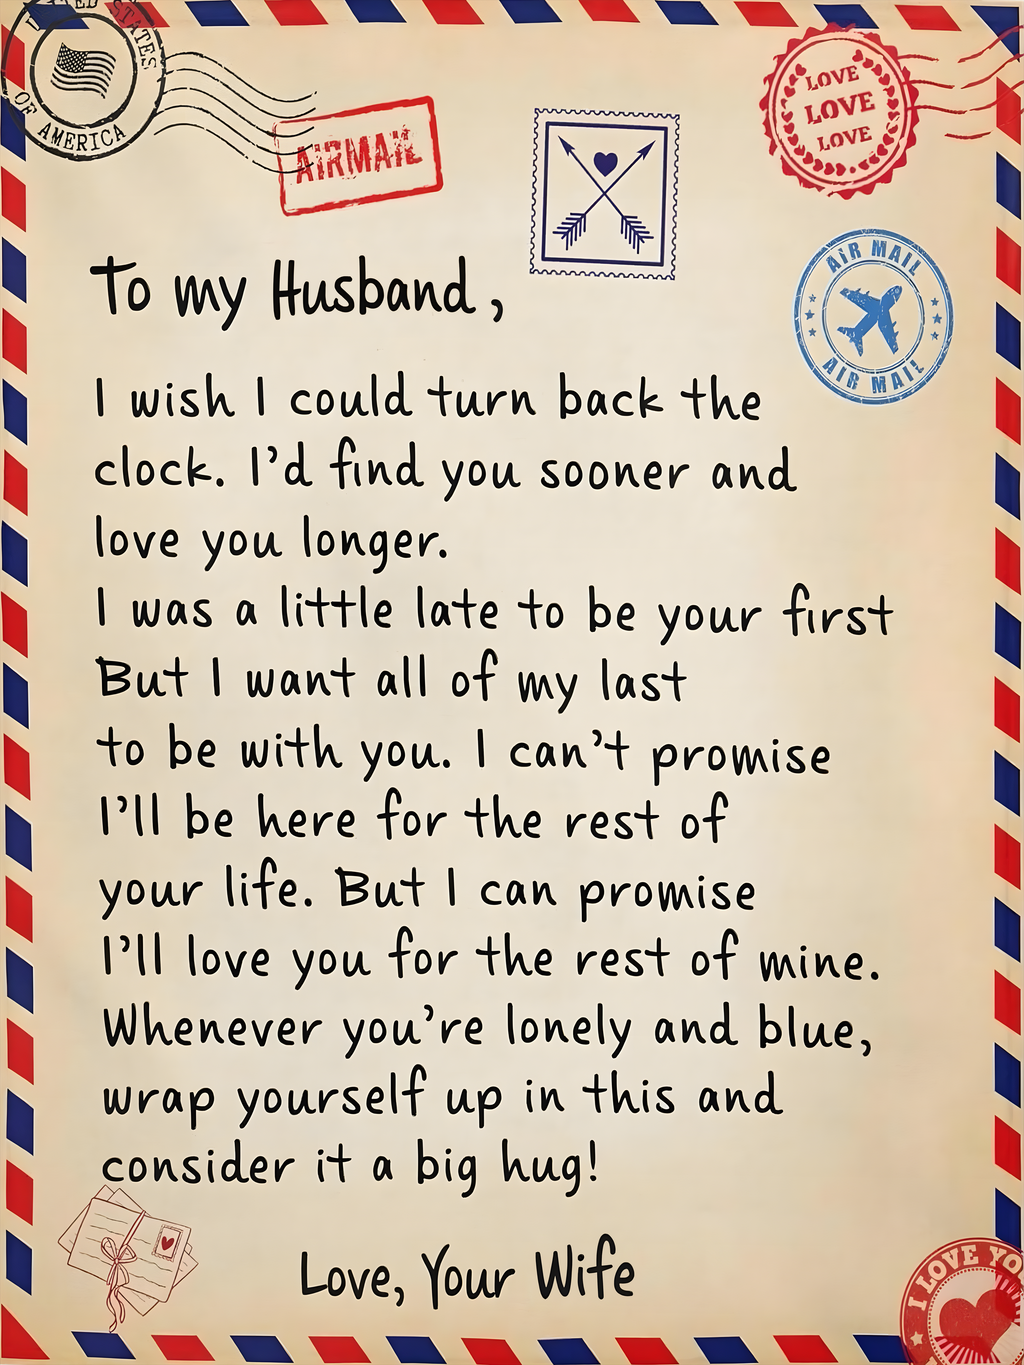 UNITED STATES
OF AMERICA
AIRMAIL
LOVE
LOVE
LOVE
AIR MAIL
AIR MAIL
To my Husband,
I wish I could turn back the
clock. I'd find you sooner and
love you longer.
I was a little late to be your first
But I want all of my last
to be with you. I can't promise
I'll be here for the rest of
your life. But I can promise
I'll love you for the rest of mine.
Whenever you're lonely and blue,
wrap yourself up in this and
consider it a big hug!
Love, Your Wife
I LOVE YO